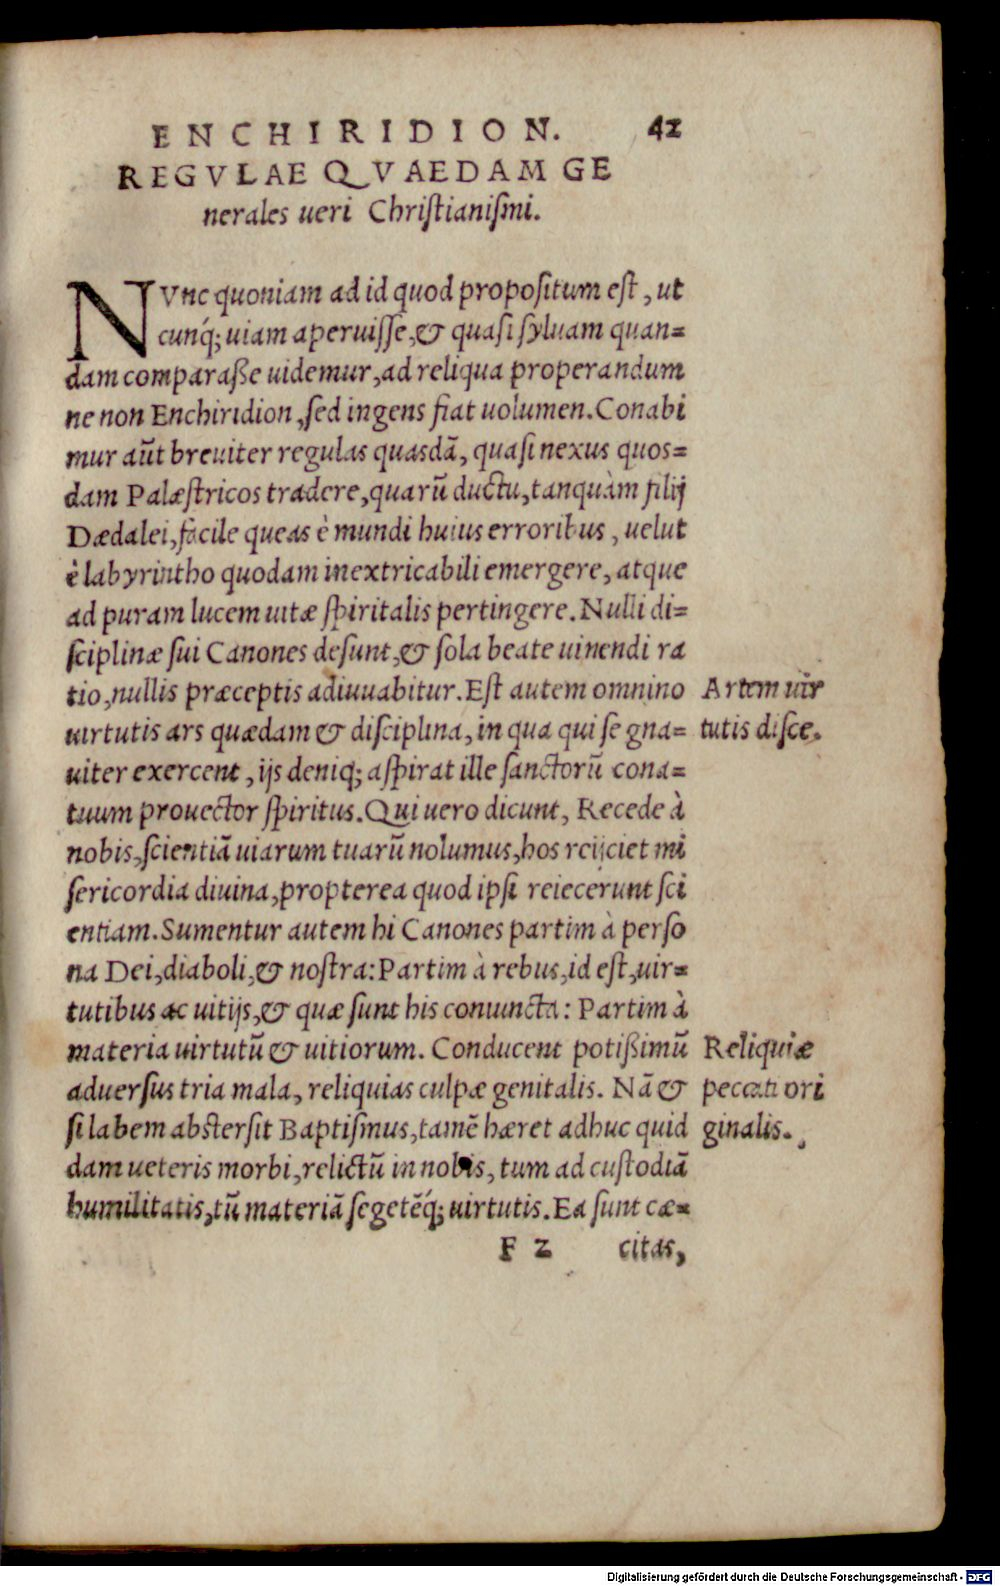 ENCHIRIDION. 42
REGVLAE QVAEDAM GE
nerales ueri Chriſtianiſmi.
NVnc quoniam ad id quod propoſitum eſt, ut
cunq́; uiam aperuiſſe, & quaſi ſyluam quan=
dam comparaße uidemur, ad reliqua properandum
ne non Enchiridion, ſed ingens fiat uolumen. Conabi
mur aūt breuiter regulas quasdā, quaſi nexus quos=
dam Palæſtricos tradere, quarū ductu, tanquàm filij
Dædalei, facile queas è mundi huius erroribus, uelut
è labyrintho quodam inextricabili emergere, atque
ad puram lucem uitæ ſpiritalis pertingere. Nulli di=
ſciplinæ ſui Canones deſunt, & ſola beate uiuendi ra
tio, nullis præceptis adiuuabitur. Eſt autem omnino
uirtutis ars quædam & diſciplina, in qua qui ſe gna=
uiter exercent, ijs deniq; aſpirat ille ſanctorū cona=
tuum prouector ſpiritus. Qui uero dicunt, Recede à
nobis, ſcientiā uiarum tuarū nolumus, hos reijciet mi
ſericordia diuina, propterea quod ipſi reiecerunt ſci
entiam. Sumentur autem hi Canones partim à perſo
na Dei, diaboli, & noſtra: Partim à rebus, id eſt, uir=
tutibus ac uitijs, & quæ ſunt his coniuncta: Partim à
materia uirtutū & uitiorum. Conducent potißimū
aduerſus tria mala, reliquias culpæ genitalis. Nā &
ſi labem abſterſit Baptiſmus, tamē hæret adhuc quid
dam ueteris morbi, relictū in nobis, tum ad cuſtodiā
humilitatis, tū materiā ſegetēq́; uirtutis. Ea ſunt cæ=
F 2 citas,
Artem uir
tutis diſce.
Reliquiæ
peccati ori
ginalis.
Digitalisierung gefördert durch die Deutsche Forschungsgemeinschaft - DFG